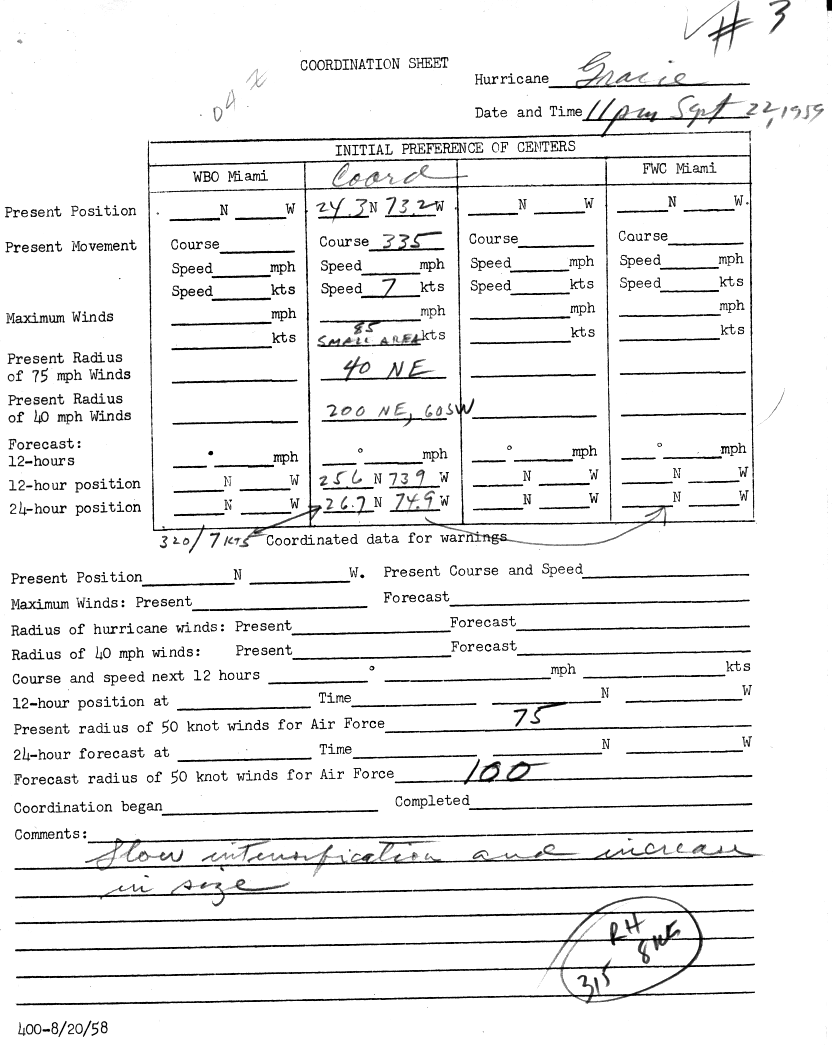 # 3
COORDINATION SHEET
04 Z
Hurricane Gracie
Date and Time 11pm Sept 22, 1959
INITIAL PREFERENCE OF CENTERS
WBO Miami Coord FWC Miami
Present Position ______N ______W 24.3N 73.2W ______N ______W ______N ______W.
Present Movement Course________ Course 335 Course________ Course________
Speed______mph Speed______mph Speed______mph Speed______mph
Speed______kts Speed 7 kts Speed______kts Speed______kts
Maximum Winds __________mph __________mph __________mph __________mph
__________kts 85 SMALL AREA kts __________kts __________kts
Present Radius
of 75 mph Winds 40 NE
Present Radius
of 40 mph Winds 200 NE, 60SW
Forecast:
12-hours ___°_____mph ___°_____mph ___°_____mph ___°_____mph
12-hour position _____N _____W 25.6 N 73.9 W _____N _____W _____N _____W
24-hour position _____N _____W 26.7 N 74.9 W _____N _____W _____N _____W
320/7 KTS Coordinated data for warnings
Present Position__________N __________W. Present Course and Speed__________
Maximum Winds: Present__________ Forecast__________
Radius of hurricane winds: Present__________ Forecast__________
Radius of 40 mph winds: Present__________ Forecast__________
Course and speed next 12 hours __________° __________mph __________kts
12-hour position at __________ Time__________ __________N __________W
Present radius of 50 knot winds for Air Force 75
24-hour forecast at __________ Time__________ __________N __________W
Forecast radius of 50 knot winds for Air Force 100
Coordination began__________ Completed__________
Comments:
Slow intensification and increase
in size
RH
315 8 kts
400-8/20/58